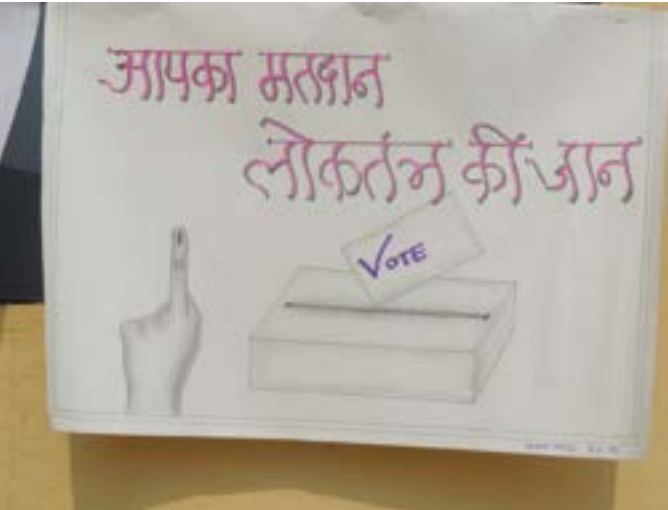 आपका मतदान
लोकतंत्र की जान
VOTE